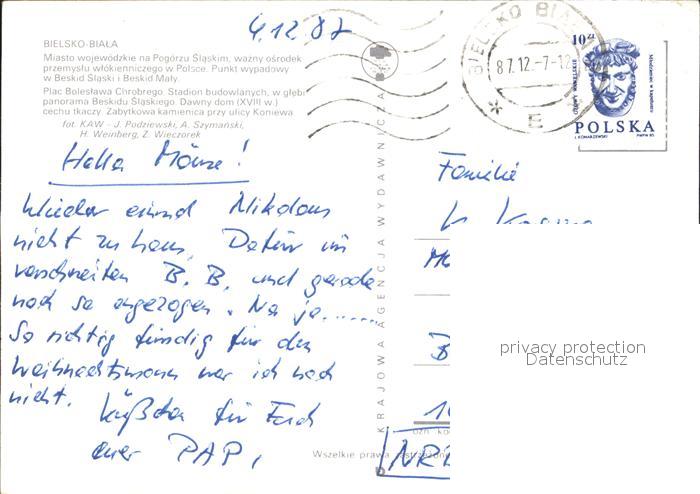 4.12.87
BIELSKO-BIAŁA
Miasto wojewódzkie na Pogórzu Śląskim, ważny ośrodek
przemysłu włókienniczego w Polsce. Punkt wypadowy
w Beskid Śląski i Beskid Mały.
Plac Bolesława Chrobrego. Stadion budowlanych, w głębi
panorama Beskidu Śląskiego. Dawny dom (XVIII w.)
cechu tkaczy. Zabytkowa kamienica przy ulicy Koniewa
fot. KAW – J. Podziewski, A. Szymański,
H. Wemberg, Z. Wieczorek
Hallo Mäuse!
Wieder einmal Nikolaus
nicht zu Haus. Dafür im
verschneiten B. B. und gerade
noch so angezogen. Na ja.......
So richtig fündig für den
Weihnachtsmann war ich noch
nicht. Küßchen für Euch
euer PAPI
KRAJOWA AGENCJA WYDAWNICZA
Wszelkie prawa zastrzeżone
BIELSKO BIAŁA
87.12.-7-12
E
10 zł
POLSKA
J. KONARZEWSKI PWPW 85
Familie
K
B
10
NRD
privacy protection
Datenschutz